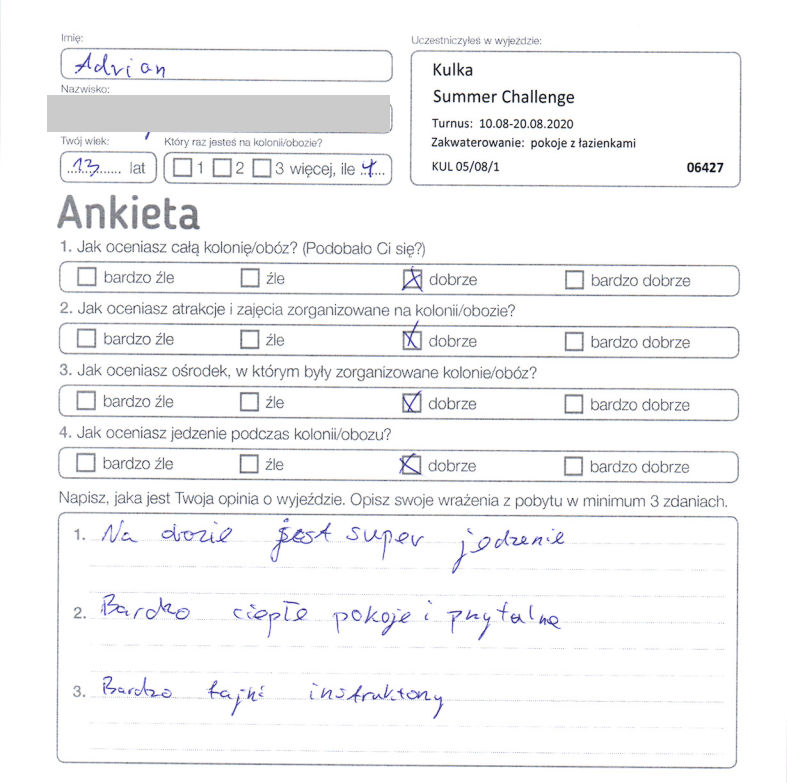 Imię:
Adrian
Uczestniczyłeś w wyjeździe:
Kulka
Summer Challenge
Turnus: 10.08-20.08.2020
Zakwaterowanie: pokoje z łazienkami
KUL 05/08/1 06427
Nazwisko:
Twój wiek:
13 lat
Który raz jesteś na kolonii/obozie?
1 2 3 więcej, ile 4
Ankieta
1. Jak oceniasz całą kolonię/obóz? (Podobało Ci się?)
bardzo źle źle dobrze bardzo dobrze
2. Jak oceniasz atrakcje i zajęcia zorganizowane na kolonii/obozie?
bardzo źle źle dobrze bardzo dobrze
3. Jak oceniasz ośrodek, w którym były zorganizowane kolonie/obóz?
bardzo źle źle dobrze bardzo dobrze
4. Jak oceniasz jedzenie podczas kolonii/obozu?
bardzo źle źle dobrze bardzo dobrze
Napisz, jaka jest Twoja opinia o wyjeździe. Opisz swoje wrażenia z pobytu w minimum 3 zdaniach.
1. Na obozie jest super jedzenie
2. Bardzo ciepłe pokoje i pzytulne
3. Bardzo fajni instruktorzy